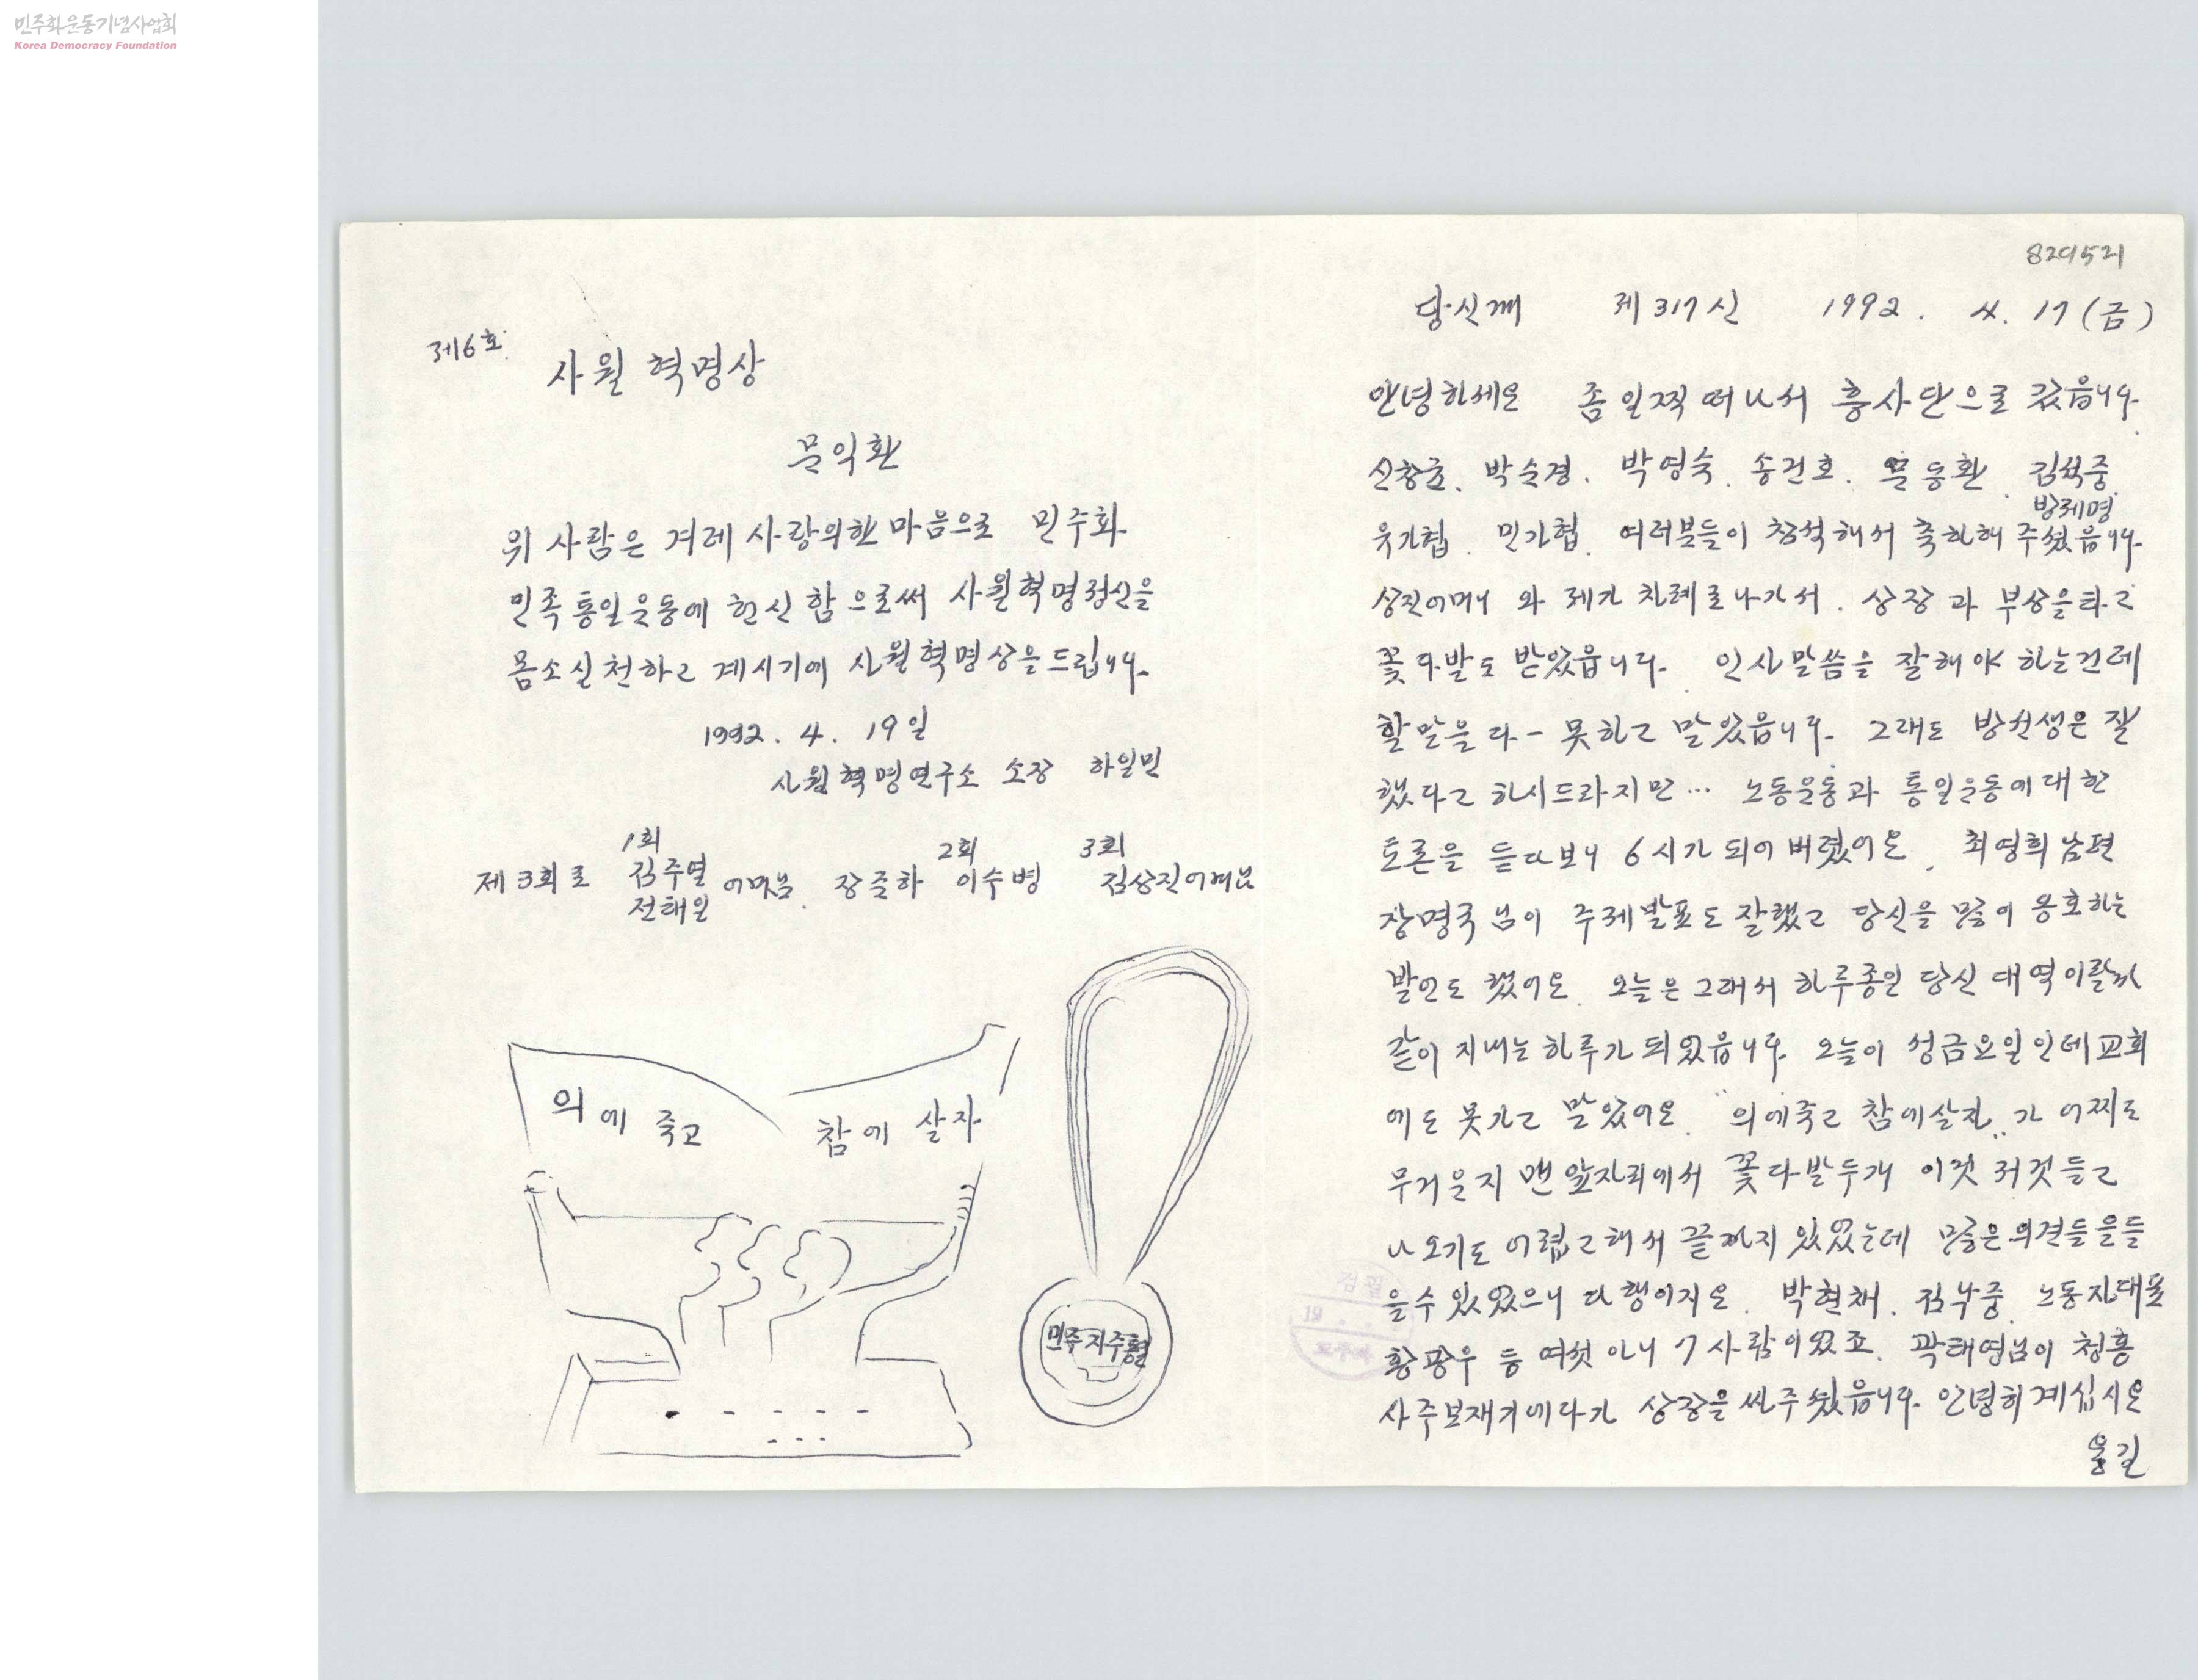 민주화운동기념사업회
Korea Democracy Foundation
제6호
사월 혁명상
문익환
위 사람은 겨레 사랑의한마음으로 민주화
민족통일운동에 헌신 함 으로써 사월혁명정신을
몸소실천하고 계시기에 사월혁명상을드립니다.
1992. 4. 19일
사월혁명연구소 소장 하일민
1회 2회 3회
제3회로 김주열 어머님. 장준하 이수병 김상진어머님
전태일
의에 죽고 참에 살자
민주자주통일
829521
당신께 제317신 1992. 4. 17(금)
안녕하세요 좀일찍떠나서 흥사단으로 갔읍니다.
신창균. 박순경. 박영숙. 송건호. 문동환. 김석중.
방제명
유가협. 민가협. 여러분들이 참석해서 축하해 주셨읍니다.
상진어머니 와 제가 차례로나가서. 상장과 부상을타고
꽃다발도 받았읍니다. 인사말씀을 잘해야 하는건데
할말을다ー못하고 말았읍니다. 그래도 방선생은 잘
했다고 하시드라지만… 노동운동과 통일운동에대한
토론을 듣다보니 6시가되어버렸어요. 최영희남편
장명국님이 주제발표도잘했고 당신을 많이 옹호하는
발언도 했어요. 오늘은그래서 하루종일 당신 대역이랄까
같이 지내는하루가되었읍니다. 오늘이 성금요일인데교회
에도 못가고 말았어요. "의에죽고 참에살자"가 어찌도
무거운지 맨앞자리에서 꽃다발두개 이것 저것들고
나오기도 어렵고해서 끝까지 있었는데 많은의견들을들
을수있었으니 다행이지요. 박현채. 김낙중. 노동자대표
황광우 등 여섯 아니 7사람이었죠. 곽태영님이 청홍
사주보재기에다가 상장을싸주셨읍니다. 안녕히계십시요
용길
검열
19 . . .